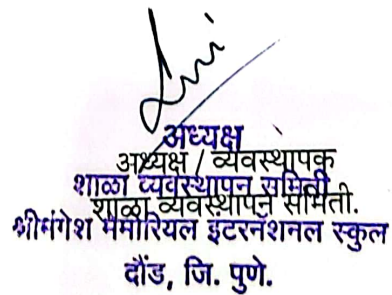 अध्यक्ष
अध्यक्ष / व्यवस्थापक
शाळा व्यवस्थापन समिती
शाळा व्यवस्थापन समिती.
श्रीमंगेश मेमोरियल इंटरनॅशनल स्कुल
दौंड, जि. पुणे.